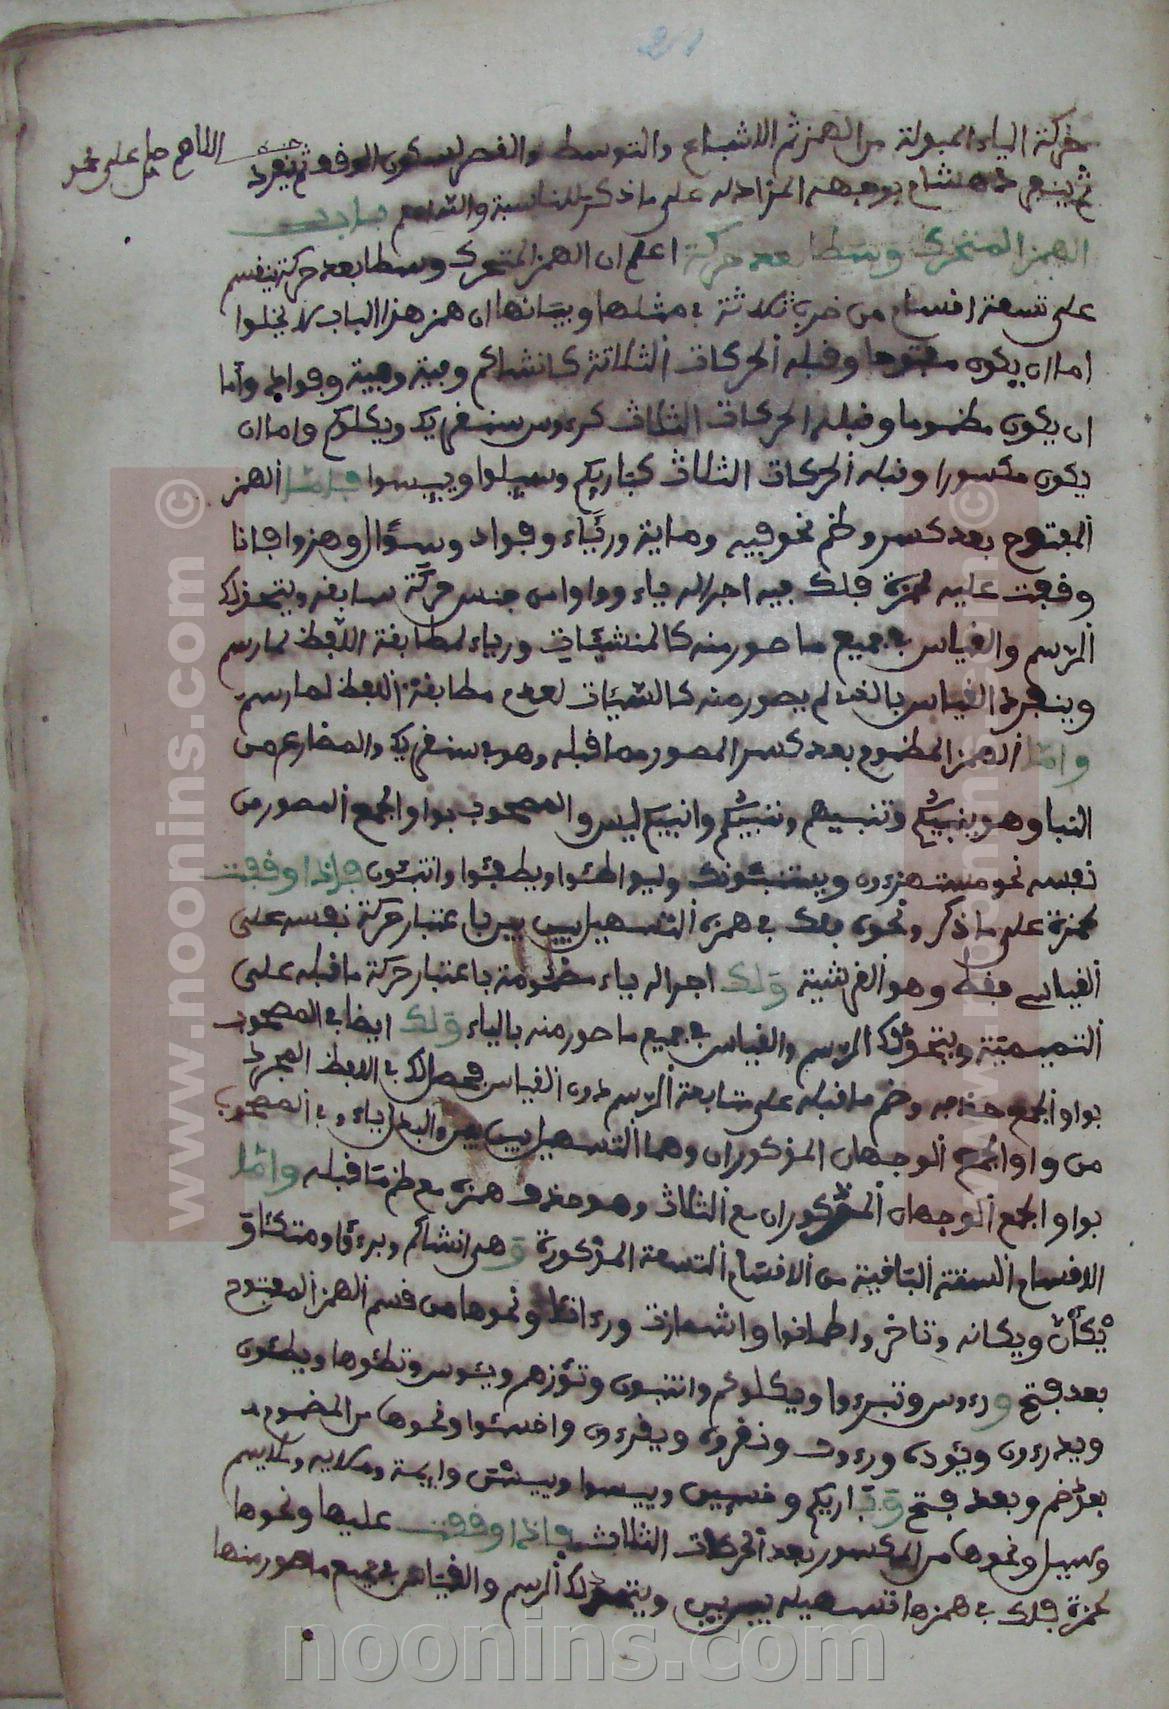 حركة الياء المبدلة من الهمز ثم الاشباع والتوسط والقصر لسكون الوقف ثم يعود
اللاهم صل على محمد
ثم يتبعه هشام بوجهه على ما ذكر للمناسبة والله اعلم باب
الهمز المتحرك وسطا بعد حركة اعلم ان الهمز المتحرك وسطا بعد حركة ينقسم
على تسعة اقسام من ضرب ثلاثة في مثلها وبيانها ان همز هذا الباب لا يخلوا
اما ان يكون مفتوحا وقبله الحركات الثلاثة كانشاكم وفية وفواد واما
ان يكون مضموما وقبله الحركات الثلاث كرءوس سنقريك ويكلوكم واما ان
يكون مكسورا وقبله الحركات الثلاث كباريكم وسيلوا وييسوا فاما الهمز
المفتوح بعد كسر وضم نحو فيه ومايه ورياء وفواد وسؤال وهزوا فاذا
وقفت عليه لحمزة فلك فيه ابداله ياء وواوا من جنس حركة سابقه ويتحد لك
الرسم والقياس في جميع ما صور منه كالمنشئات ورياء لمطابقة اللفظ لما رسم
وينفرد القياس بالذي لم يصور منه كالسيئات لعدم مطابقة اللفظ لما رسم
واما الهمز المضموم بعد كسر المصور مما قبله وهو سنقريك والمضارع من
النبا وهو ينبيكم وتنبيهم وننبيكم وانبيكم ليس والمصحوب بواو الجمع المصور من
نفسه نحو مستهزءون ويستنبئونك وليواطئوا ويطفئوا وانبئون فاذا وقفت
لحمزة على ما ذكر ونحوه فلك في همزه التسهيل بين بين باعتبار حركة نفسه على
القياس فقط وهو القرشية ولك ابداله ياء مضمومة باعتبار حركة ما قبله على
التميمية ويتحد لك الرسم والقياس في جميع ما صور منه بالياء ولك ايضا في المصحوب
بواو الجمع حذفه وضم ما قبله على متابعة الرسم دون القياس فحصل لك في اللفظ المجرد
من واو الجمع الوجهان المذكوران وهما التسهيل بين بين والبدل ياء وفي المصحوب
بواو الجمع الوجهان المذكوران مع الثالث وهو حذف همزه مع ضم ما قبله واما
الاقسام الستة الباقية من الاقسام التسعة المذكورة وهي انشاكم وبرءؤا ومتكئا
يكأن ويكانه وتاخر واطمانوا واشمازت ورءاك ونحوها من قسم الهمز المفتوح
بعد فتح ورءوس وتبرءوا ويكلوكم وانتبئون وتؤزهم ويئوس وتطئوها ويطئون
ويدرءون ويئوده ورءوف ونقرؤه ويقرءون واخسئوا ونحوها من المضموم
بعد ضم وبعد فتح وباريكم وخسيين وييسوا وييسن وايمة وملايه وملايهم
وسيل ونحوها من المكسور بعد الحركات الثلاث فاذا وقفت عليها ونحوها
لحمزة فلك في همزها تسهيله بين بين ويتحد لك الرسم والقياس في جميع ما صور منها
www.noonins.com ©
www.noonins.com ©
noonins.com